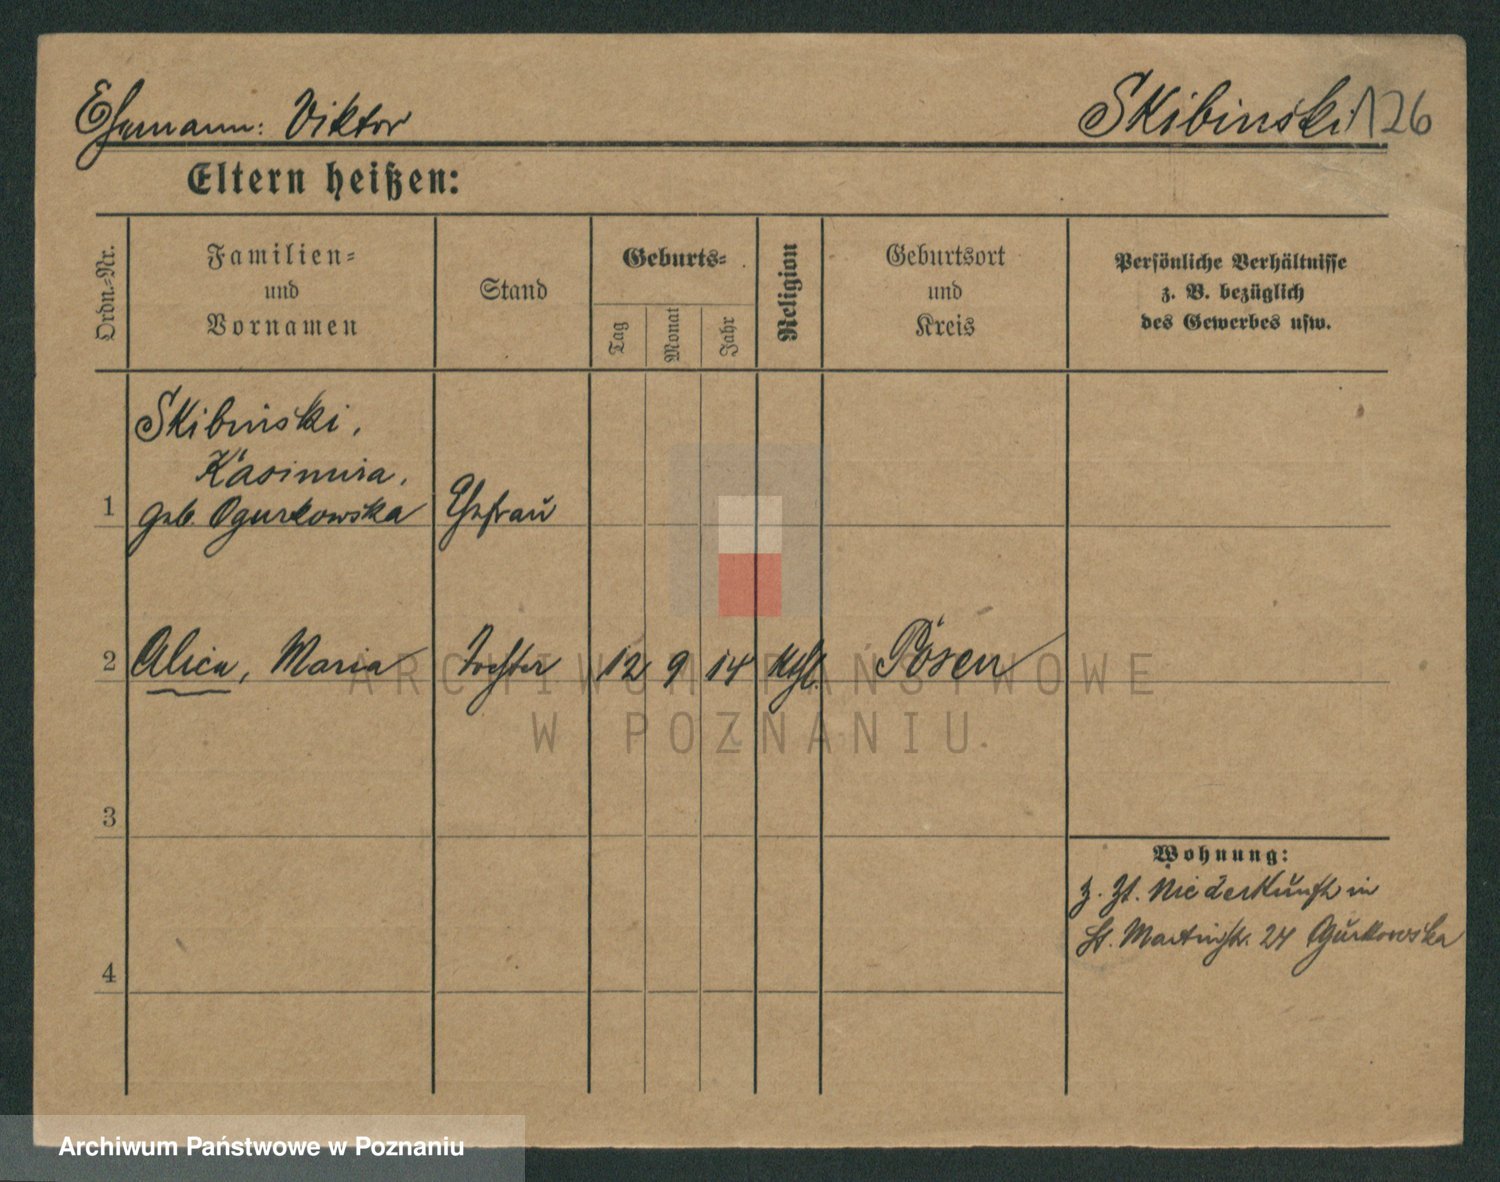 Ehemann: Viktor Skibinski 126
Eltern heißen:
Ordn.-Nr.
Familien-
und
Vornamen
Stand
Geburts-
Tag
Monat
Jahr
Religion
Geburtsort
und
Kreis
Persönliche Verhältnisse
z. B. bezüglich
des Gewerbes usw.
Skibinski,
Kasimira,
1 geb. Ogurkowska Ehefrau
2 Alica, Maria Tochter 12 9 14 kthl. Posen
ARCHIWUM PAŃSTWOWE
W POZNANIU
3
Wohnung:
z. Zt. Niederkunft in
St. Martinstr. 24 Ogurkowska
4
Archiwum Państwowe w Poznaniu